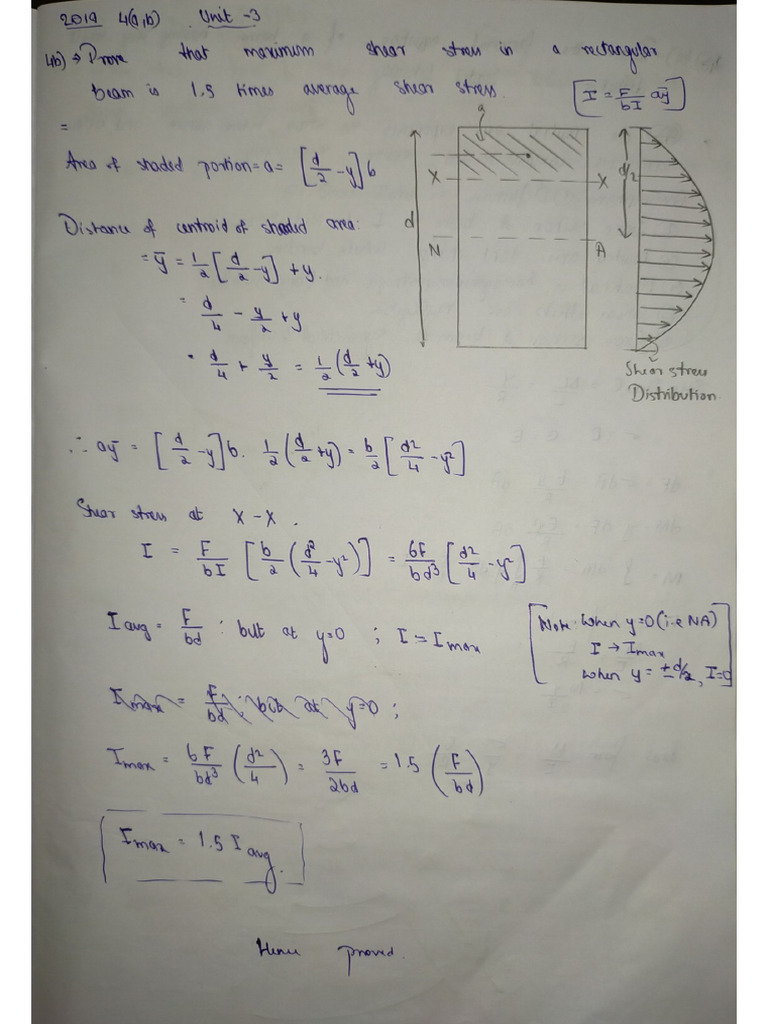 2019 4(a,b) Unit -3
4b) → Prove that maximum shear stress in a rectangular
beam is 1.5 times average shear stress. [I = F/bI aȳ]
=
a
Area of shaded portion = a = [d/2 - y] b
X X
d
d/2
N A
Distance of centroid of shaded area:
= ȳ = 1/2 [d/2 - y] + y.
= d/4 - y/2 + y
= d/4 + y/2 = 1/2 (d/2 + y)
Shear stress
Distribution
∴ aȳ = [d/2 - y] b. 1/2 (d/2 + y) = b/2 [d²/4 - y²]
Shear stress at X - X.
I = F/bI [b/2 (d²/4 - y²)] = 6F/bd³ [d²/4 - y²]
I avg = F/bd : but at y=0 ; I = I max
[Note: when y=0 (i.e NA)
I → Imax
when y = ± d/2, I=0]
I max = F/bd : but at y=0 ;
I max = 6F/bd³ (d²/4) = 3F/2bd = 1.5 (F/bd)
I max = 1.5 I avg.
Hence proved.